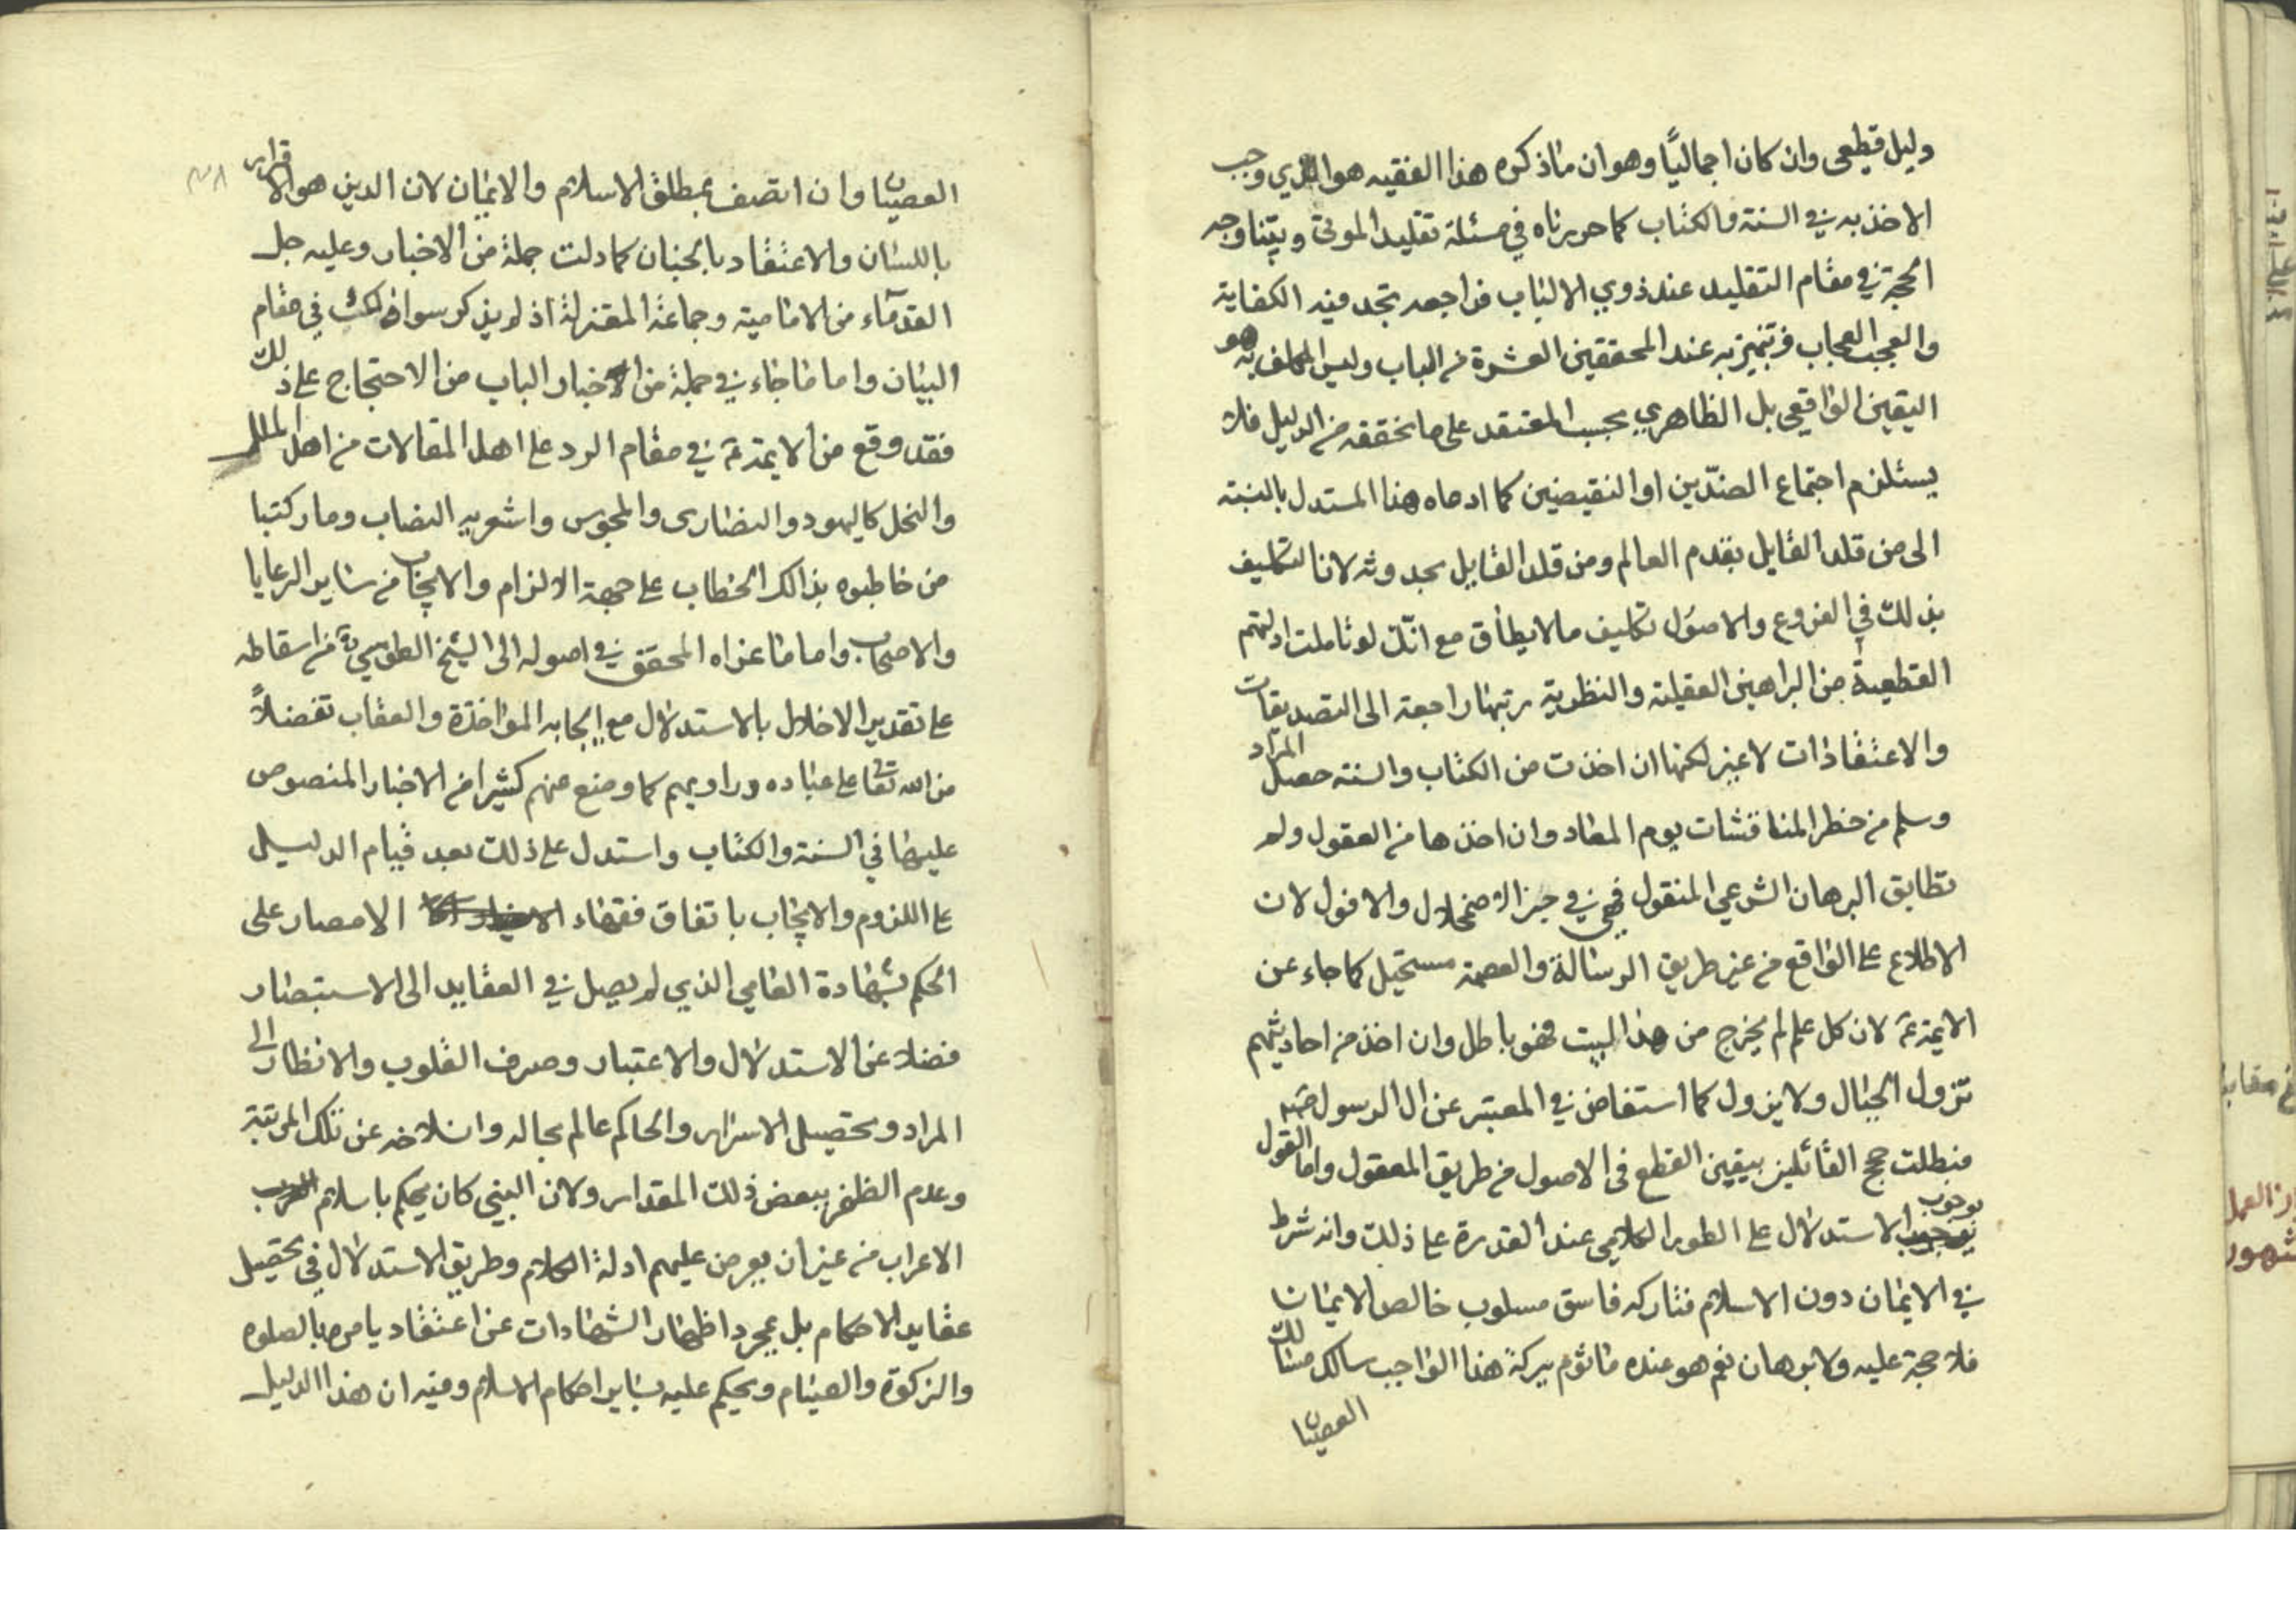 دليل قطعى وان كان اجماليًا وهو ان ما ذكره هذا الفقيه هو الذي وجب
الاخذ به في السنة والكتاب كما حررناه في مسئلة تقليد الموتى وبيّنا وجه
الحجة في مقام التقليد عند ذوي الالباب فراجعه تجد فيه الكفاية
والعجب العجاب وتميز به عند المحققين القشرة من اللباب وليس المكلف به هو
اليقين الواقعي بل الظاهري بحسب المعتقد على ما تحققه من الدليل فلا
يستلزم اجتماع الضدّين او النقيضين كما ادعاه هذا المستدل بالنسبة
الى من قلد القايل بقدم العالم ومن قلد القايل بحدوثه لان التكليف
بذلك في الفروع والاصول تكليف ما لا يطاق مع انّك لو تاملت ادلتهم
القطعية من البراهين العقلية والنظرية رتبها راجعة الى التصديقات
والاعتقادات لا غير لكنها ان اخذت من الكتاب والسنة حصل المراد
وسلم من خطر المناقشات يوم المعاد وان اخذها من العقول ولم
تطابق البرهان الشرعي المنقول فهي في حيز الاضمحلال والافول لان
الاطلاع على الواقع من غير طريق الرسالة والعصمة مستحيل كما جاء عن
الايمة ع لان كل علم لم يخرج من هذا البيت فهو باطل وان اخذ من احاديثهم
تزول الجبال ولا يزول كما استفاض في المعتبر عن ال الرسول ص
فبطلت حجج القائلين بيقين القطع فى الاصول من طريق المعقول واما القول
بوجوب الاستدلال على الطور الكلامي عند القدرة على ذلك وانه شرط
في الايمان دون الاسلام فتاركه فاسق مسلوب خالص الايمان
فلا حجة عليه ولا برهان نعم هو عنده ماثوم بتركه هذا الواجب سالك مسالك
العصيان
العصيان وان اتصف بمطلق الاسلام والايمان لان الدين هو الاقرار
باللسان والاعتقاد بالجنان كما دلت جملة من الاخبار وعليه جل
القدماء من الامامية وجماعة المعتزلة اذ لم يذكر سوا ذلك في مقام
البيان واما ما جاء في جملة من الاخبار الباب من الاحتجاج على ذلك
فقد وقع من الايمة ع في مقام الرد على اهل المقالات من اهل الملل
والنحل كاليهود والنصارى والمجوس واشعريه النصاب وما ركتبا
من خاطبوه بذالك الخطاب على جهة الالزام والايجاب من ساير الرعايا
والاصحاب واما ما عزاه المحقق في اصوله الى الشيخ الطوسي ره من اسقاطه
على تقدير الاخلال بالاستدلال مع ايجابه المواخذة والعقاب تفضلاً
من الله تعا على عباده وراويهم كما وضع عنهم كثيرا من الاخبار المنصوص
عليها في السنة والكتاب واستدل على ذلك بعد قيام الدليل
على اللزوم والايجاب باتفاق فقهاء الامصار على
الحكم بشهادة العامي الذي لم يصل في العقايد الى الاستبصار
فضلا عن الاستدلال والاعتبار وصرف القلوب والانظار الى
المراد وتحصيل الاسرار والحاكم عالم بحاله وانسلاخه عن تلك المرتبة
وعدم الظفر ببعض ذلك المقدار ولان النبي كان يحكم باسلام
الاعراب من غير ان يعرض عليهم ادلة الكلام وطريق الاستدلال في تحصيل
عقايد الاحكام بل بمجرد اظهار الشهادات عن اعتقاد يامره بالصلوه
والزكوة والصيام ويحكم عليه بساير احكام الاسلام وفيه ان هذا الدليل